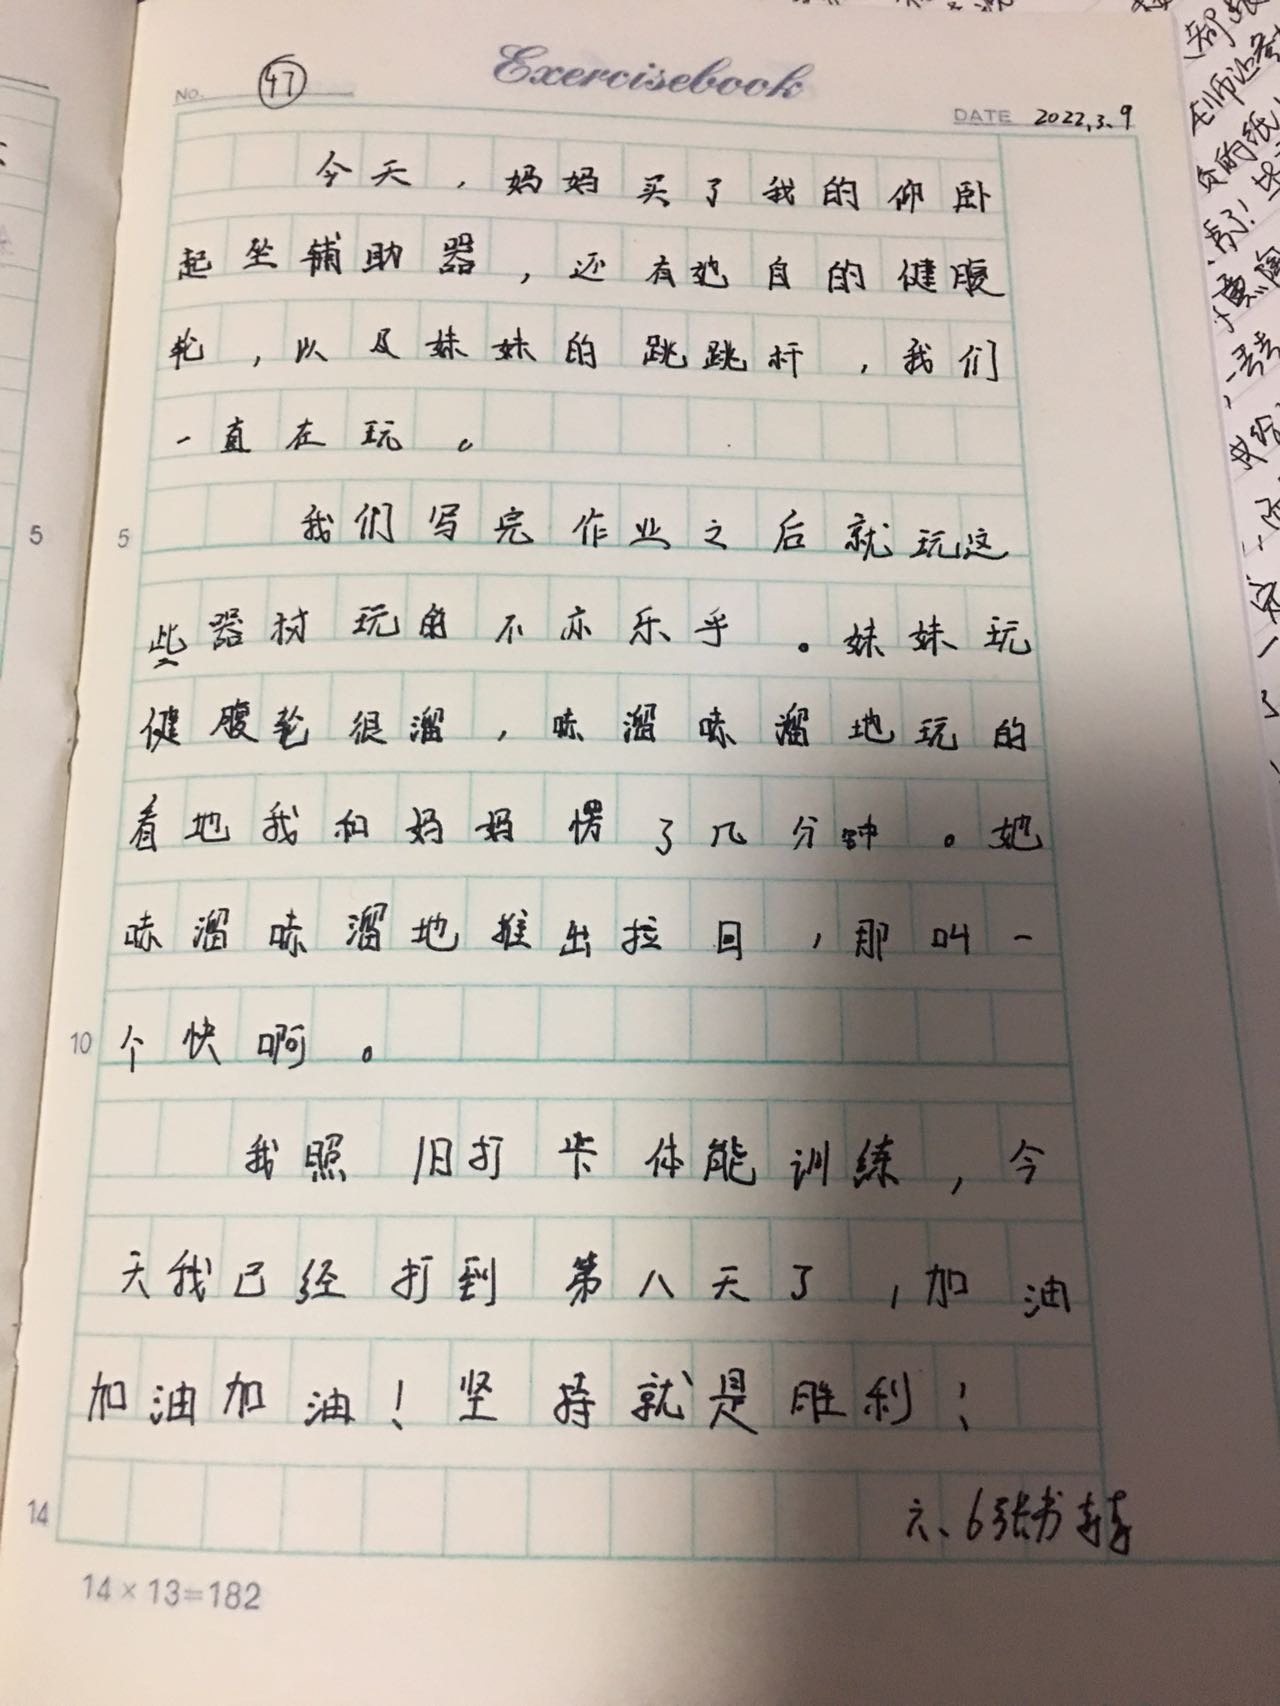 Exercisebook
NO. 47
DATE 2022.3.9
今天,妈妈买了我的仰卧
起坐辅助器,还有她自的健腹
轮,以及妹妹的跳跳杆,我们
一直在玩。
5 5 我们写完作业之后就玩这
些器材玩的不亦乐乎。妹妹玩
健腹轮很溜,哧溜哧溜地玩的
看地我和妈妈愣了几分钟。她
哧溜哧溜地推出拉回,那叫一
10 个快啊。
我照旧打卡体能训练,今
天我已经打到第八天了,加油
加油加油!坚持就是胜利!
14 六、6张书
14×13=182